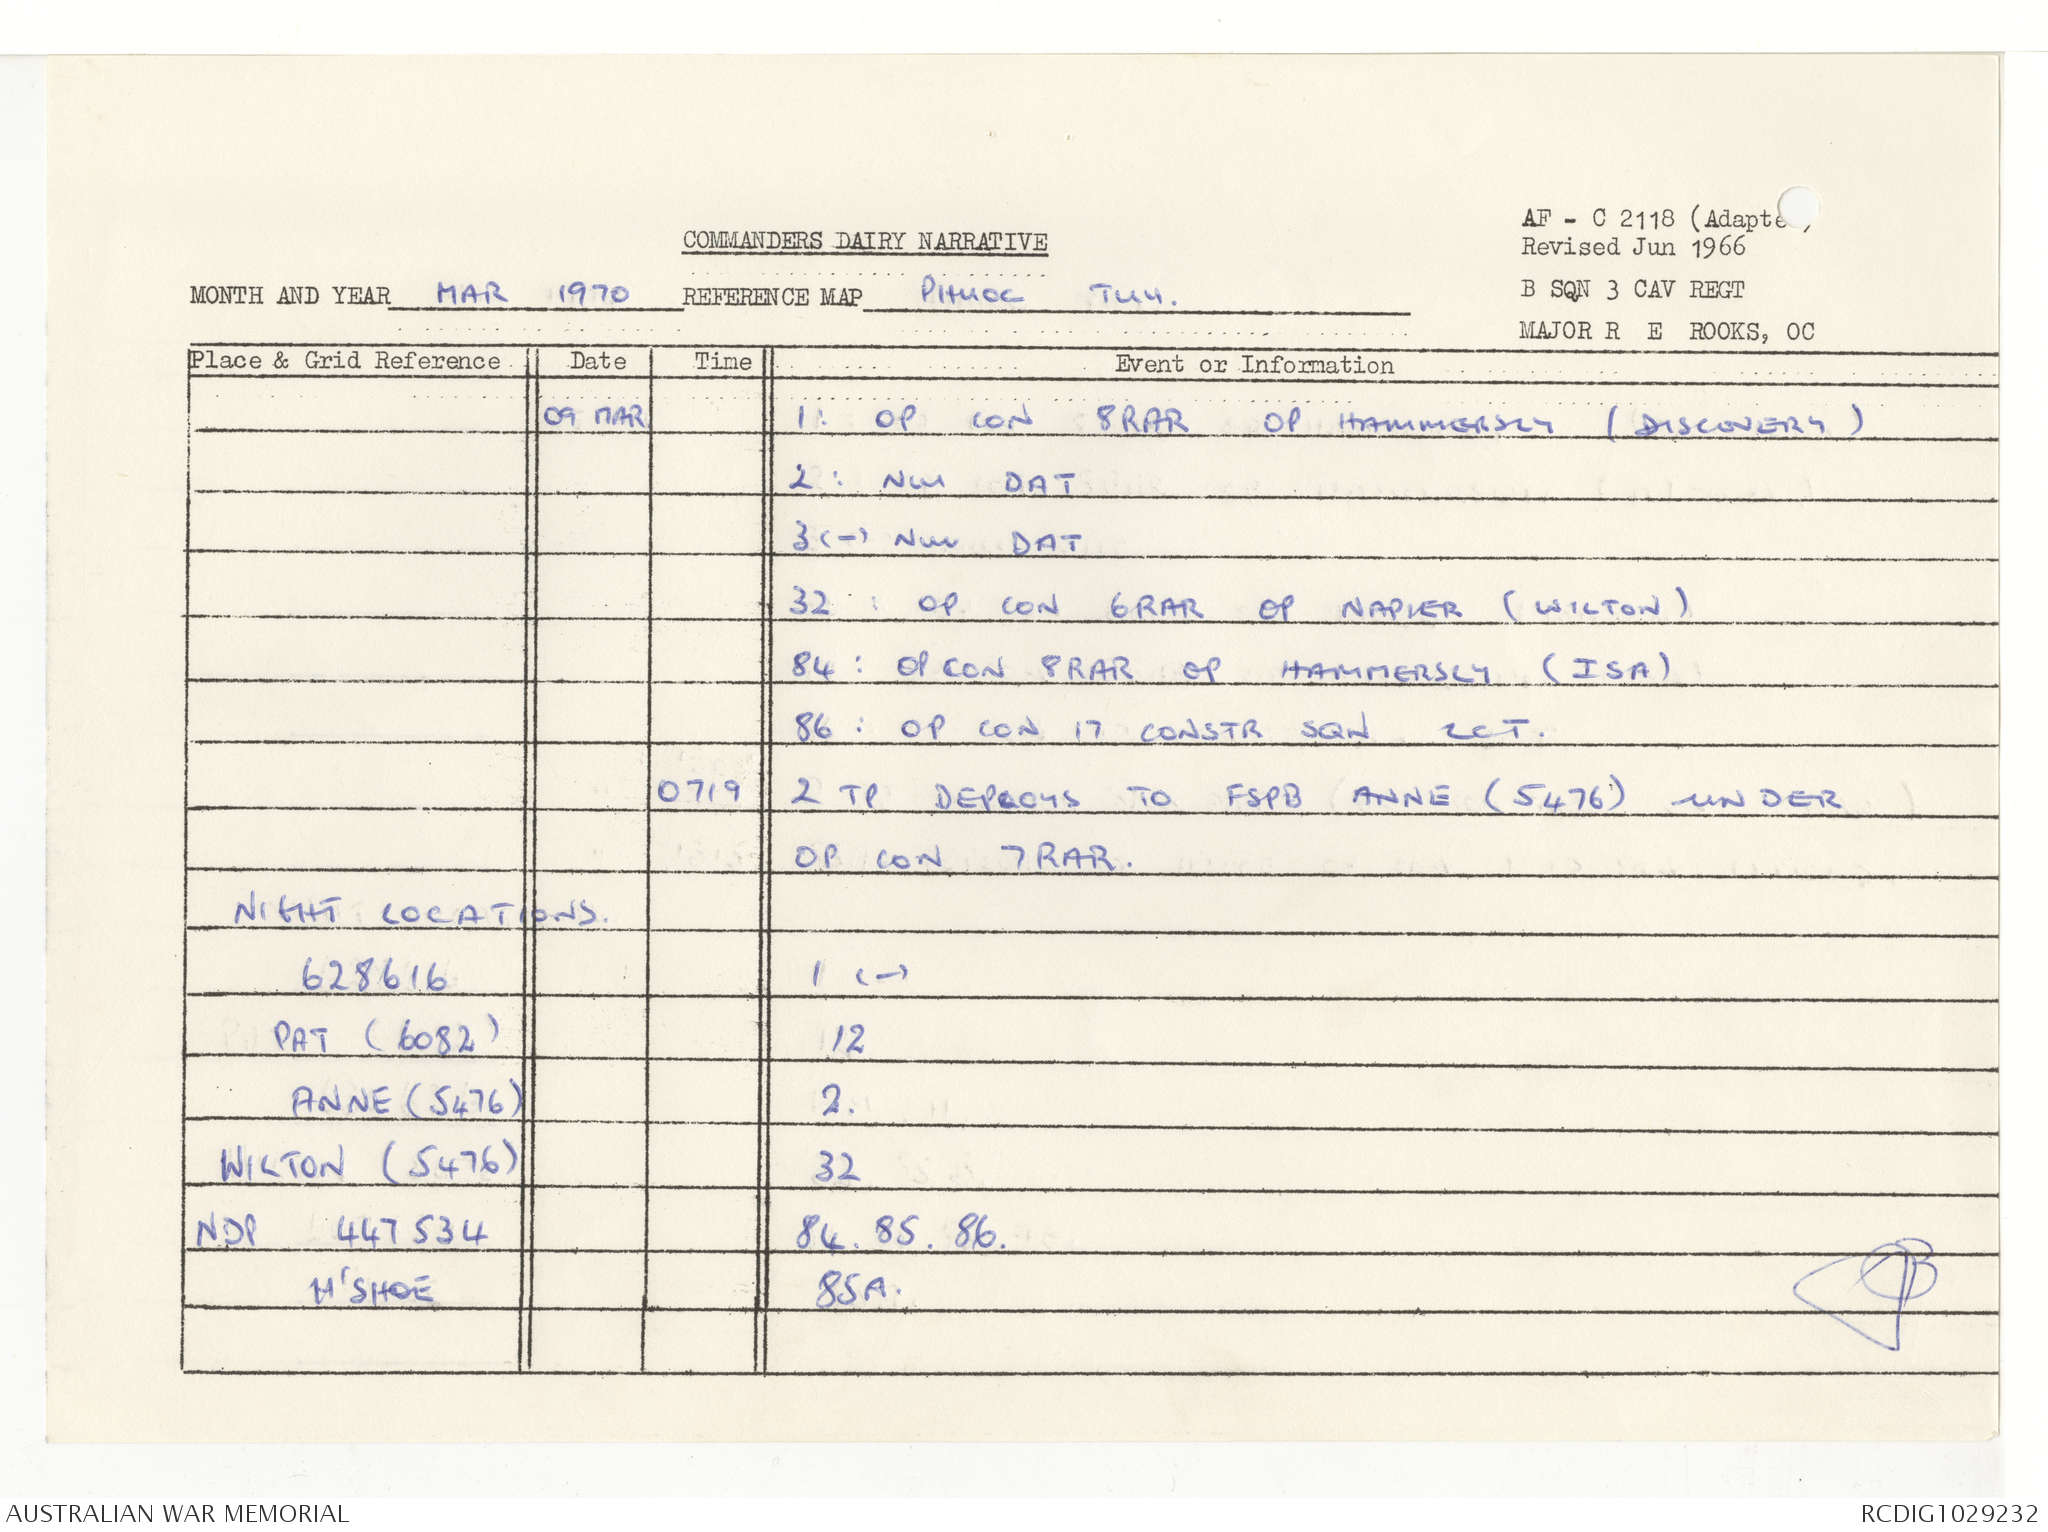 AF - C 2118 (Adapte )
COMMANDERS DAIRY NARRATIVE
Revised Jun 1966
MONTH AND YEAR MAR 1970 REFERENCE MAP PHUOC TUY.
B SQN 3 CAV REGT
MAJOR R E ROOKS, OC
Place & Grid Reference Date Time Event or Information
09 MAR 1: OP CON 8RAR OP HAMMERSLY (DISCOVERY)
2: NUI DAT
3(-) NUI DAT
32 : OP CON 6RAR OP NAPIER (WILTON)
84: OP CON 8RAR OP HAMMERSLY (ISA)
86: OP CON 17 CONSTR SQN LCT.
0719 2 TP DEPLOYS TO FSPB ANNE (5476) UNDER
OP CON 7RAR.
NIGHT LOCATIONS.
628616 1 (-)
PAT (6082) 12
ANNE (5476) 2.
WILTON (5476) 32
NDP 447534 84. 85. 86.
H'SHOE 85A.
AUSTRALIAN WAR MEMORIAL RCDIG1029232